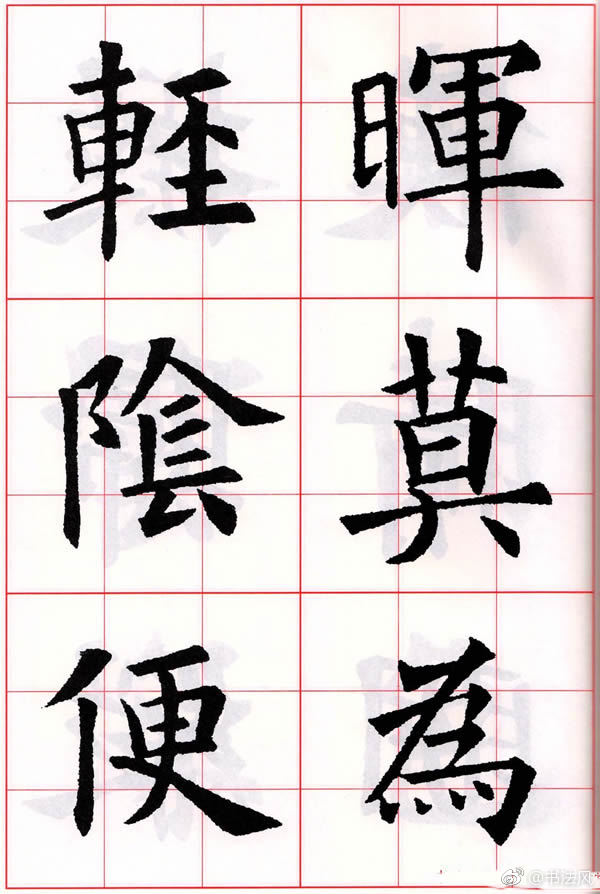 暉莫為
輕陰便
@书法风